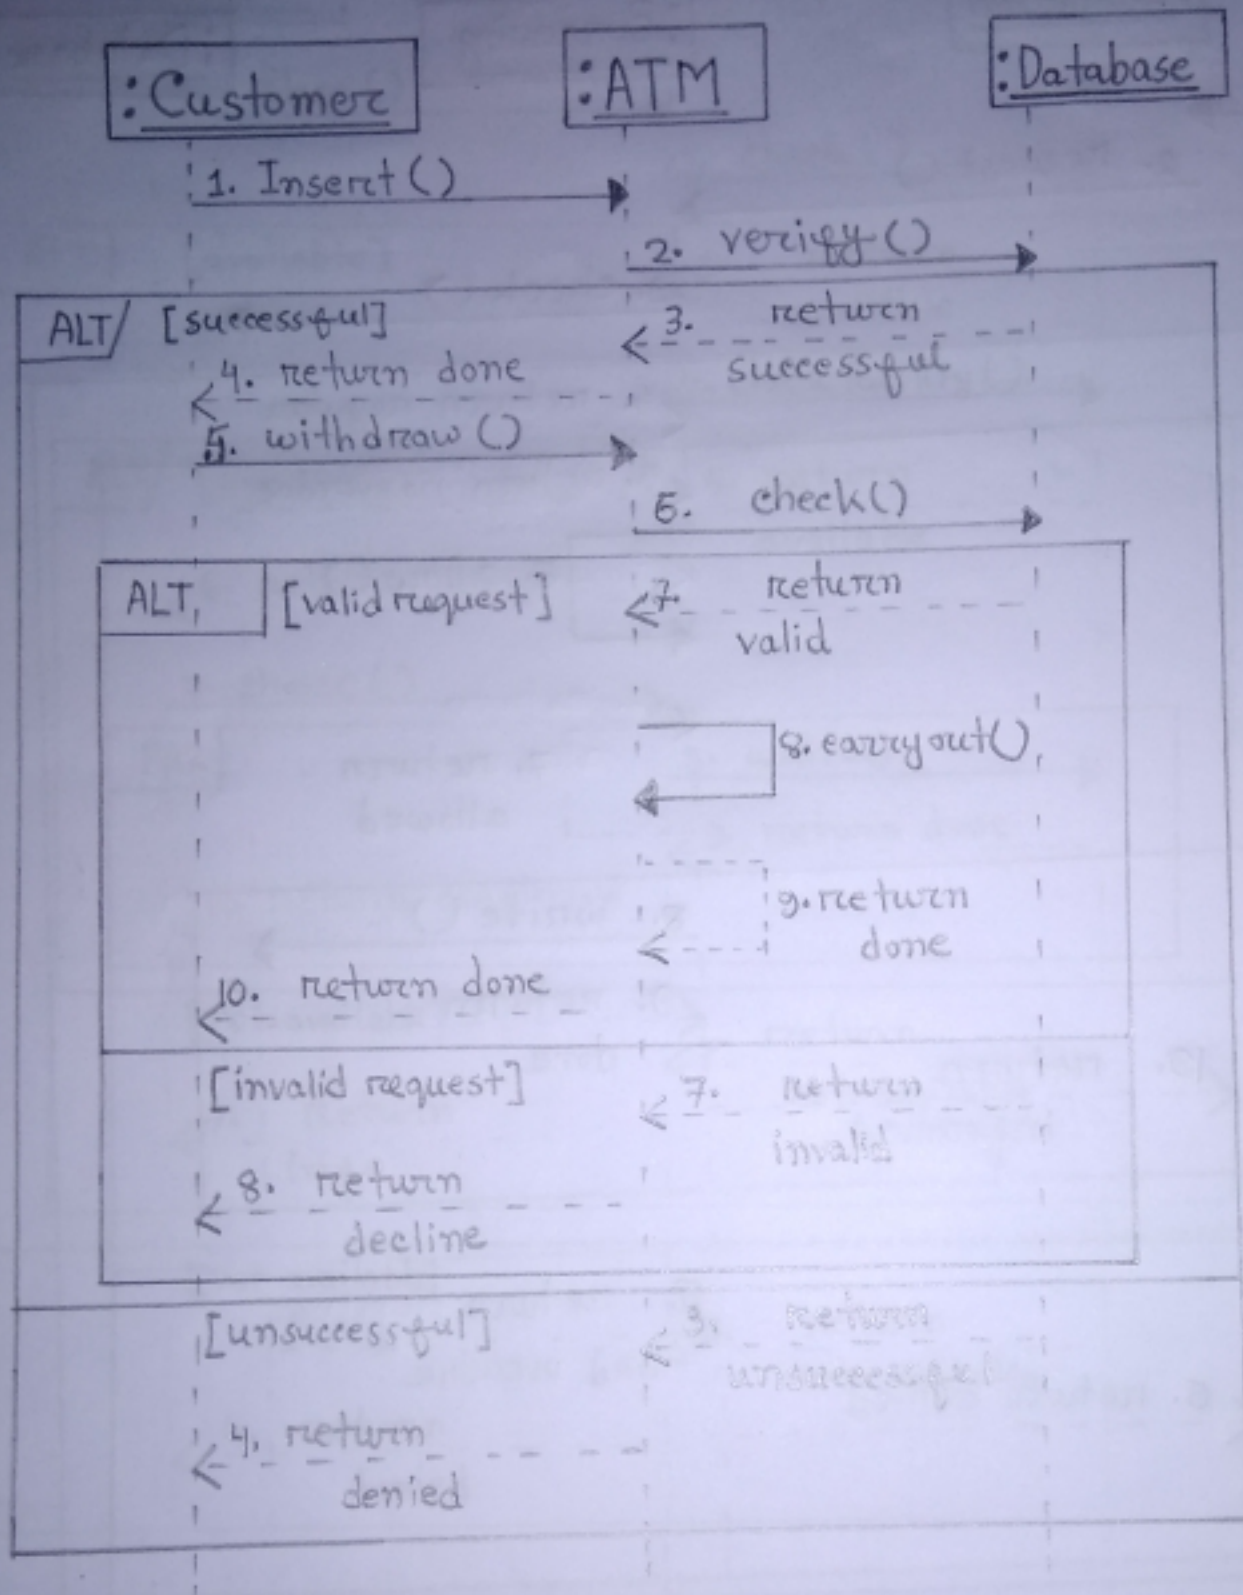 :Customer
:ATM
:Database
1. Insert()
2. verify()
ALT
[successful]
3. return
successful
4. return done
5. withdraw()
6. check()
ALT
[valid request]
7. return
valid
8. carryout()
9. return
done
10. return done
[invalid request]
7. return
invalid
8. return
decline
[unsuccessful]
3. return
unsuccessful
4. return
denied